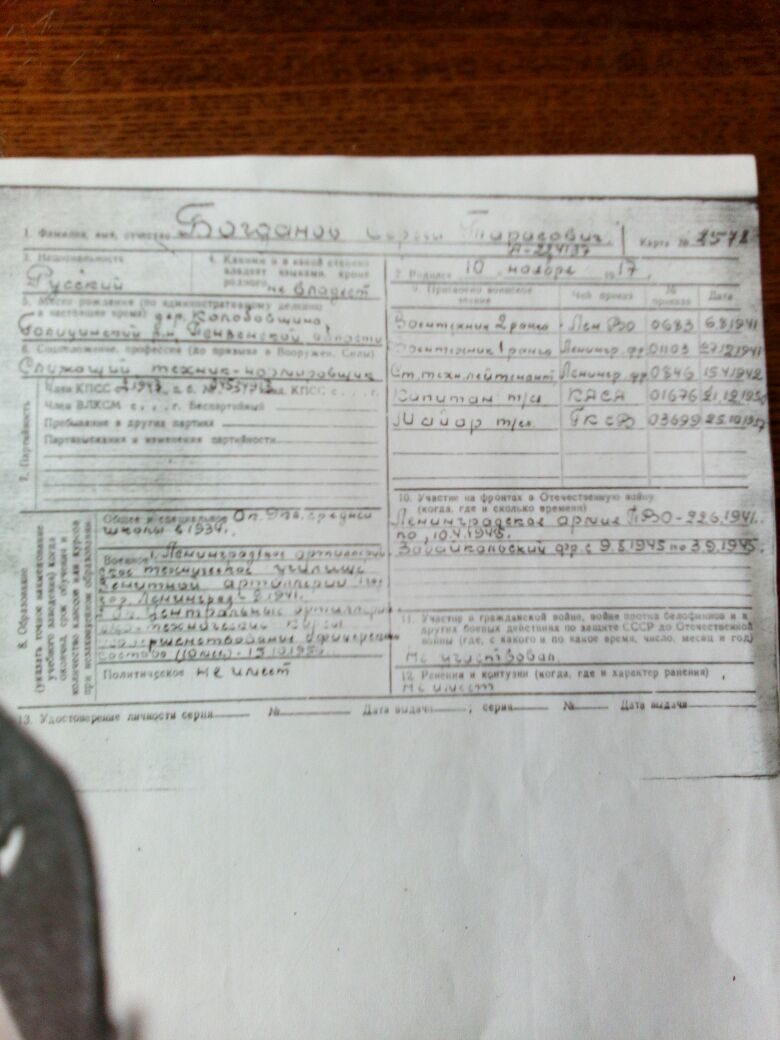 1. Фамилия, имя, отчество Богданов Сергей Тарасович
Карта №
А-224137
3. Национальность
Русский
4. Какими и в какой степени
владеет языками, кроме
родного не владеет
2. Родился 10 ноября 1917
5. Место рождения (по административному делению
в настоящее время) дер. Колобовщина,
Пензенской области
6. Соцположение, профессия (до призыва в Вооружен. Силы)
Служащий техник-нормировщик
7. Партийность
Член КПСС с КПСС с . . . г.
Член ВЛКСМ с . . . г. Беспартийный
Пребывание в других партиях
Партвзыскания и изменения партийности
9. Присвоено воинское звание Чей приказ № приказа Дата
Воентехник 2 ранга ЛенВО 0683 6.8.1941
Воентехник 1 ранга Ленингр. фр. 01103 27.12.1941
Ст. техн. лейтенант Ленингр. фр. 0846 15.4.1942
Капитан т/сл 01676 21.12.195
Майор т/сл. 03699 25.10.195
8. Образование
(указать точное наименование
учебного заведения) когда
окончил, срок обучения и
количество классов или курсов
при незаконченном образовании
Общее и специальное средней
школы в 1934г.
Военное 1. Ленинградское артиллерий-
ское техническое училище
зенитной артиллерии
гор. Ленинград 2.1941.
Центральные артиллерий-
технические курсы
усовершенствования офицерского
состава (10мес)
Политическое не имеет
10. Участие на фронтах в Отечественную войну
(когда, где и сколько времени)
Ленинградская армия ПВО - 22.6.1941.
по
Забайкальский фр. с 9.8.1945 по 3.9.1945.
11. Участие в гражданской войне, войне против белофиннов и в
других боевых действиях по защите СССР до Отечественной
войны (где, с какого и по какое время, число, месяц и год)
Не участвовал.
12. Ранения и контузии (когда, где и характер ранения)
Не имеет
13. Удостоверение личности серия № Дата выдачи ; серия № Дата выдачи